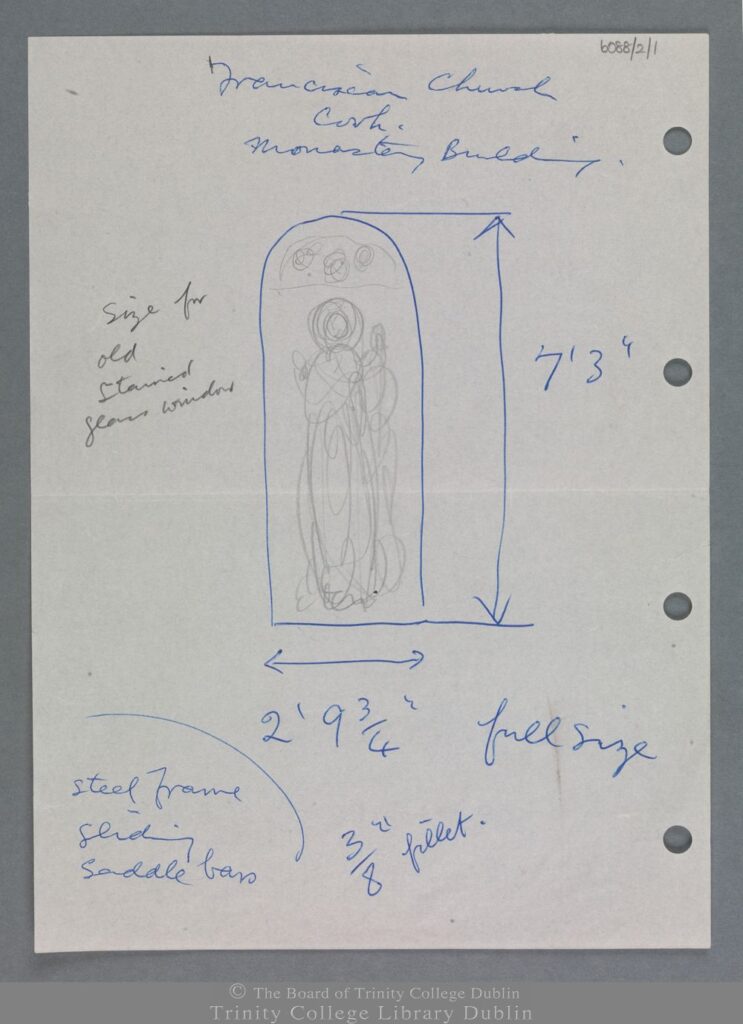 6088/2/1
Franciscan Church
Cork.
Monastery Building.
Size for
old
stained
glass window
7' 3"
2' 9 3/4" full size
steel frame
sliding
saddle bars
3/8" fillet.
© The Board of Trinity College Dublin
Trinity College Library Dublin